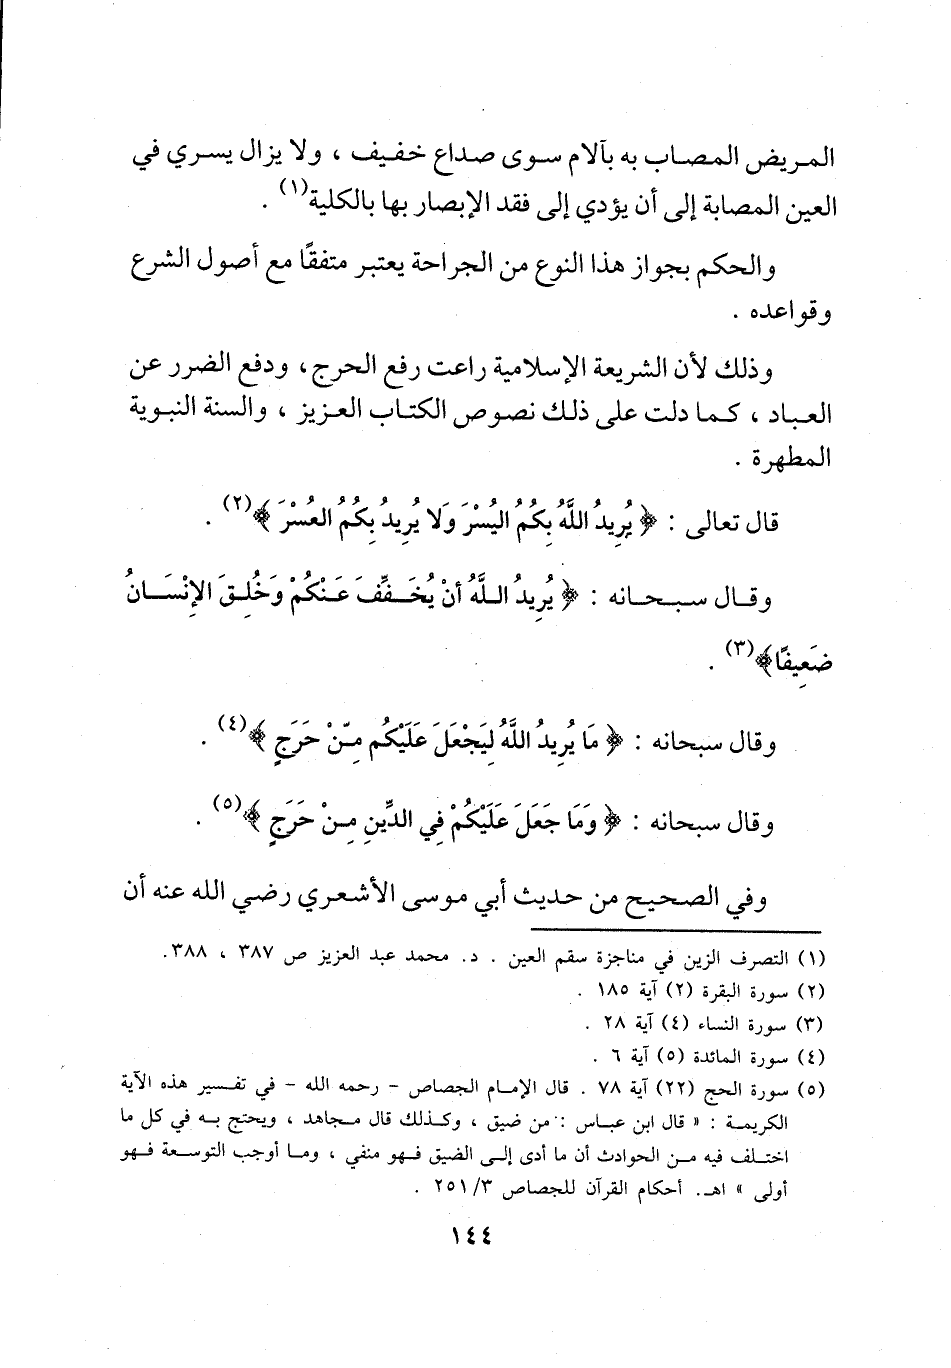 المريض المصاب به بآلام سوى صداع خفيف ، ولا يزال يسري في
العين المصابة إلى أن يؤدي إلى فقد الإبصار بها بالكلية(١) .
والحكم بجواز هذا النوع من الجراحة يعتبر متفقًا مع أصول الشرع
وقواعده .
وذلك لأن الشريعة الإسلامية راعت رفع الحرج، ودفع الضرر عن
العباد ، كما دلت على ذلك نصوص الكتاب العزيز ، والسنة النبوية
المطهرة .
قال تعالى : ﴿ يُرِيدُ اللَّهُ بِكُمُ اليُسْرَ وَلَا يُرِيدُ بِكُمُ العُسْرَ ﴾(٢) .
وقال سبحانه : ﴿ يُرِيدُ اللَّهُ أنْ يُخَفِّفَ عَنْكُمْ وَخُلِقَ الإِنْسَانُ
ضَعِيفًا﴾(٣) .
وقال سبحانه : ﴿ مَا يُرِيدُ اللَّهُ لِيَجْعَلَ عَلَيْكُم مِنْ حَرَجٍ ﴾(٤) .
وقال سبحانه : ﴿ وَمَا جَعَلَ عَلَيْكُمْ فِي الدِّينِ مِنْ حَرَجٍ ﴾(٥) .
وفي الصحيح من حديث أبي موسى الأشعري رضي الله عنه أن
(١) التصرف الزين في مناجزة سقم العين . د. محمد عبد العزيز ص ٣٨٧ ، ٣٨٨.
(٢) سورة البقرة (٢) آية ١٨٥ .
(٣) سورة النساء (٤) آية ٢٨ .
(٤) سورة المائدة (٥) آية ٦ .
(٥) سورة الحج (٢٢) آية ٧٨ . قال الإمام الجصاص - رحمه الله - في تفسير هذه الآية
الكريمة : « قال ابن عباس : من ضيق ، وكذلك قال مجاهد ، ويحتج به في كل ما
اختلف فيه من الحوادث أن ما أدى إلى الضيق فهو منفي ، وما أوجب التوسعة فهو
أولى » اهـ. أحكام القرآن للجصاص ٢٥١/٣ .
١٤٤